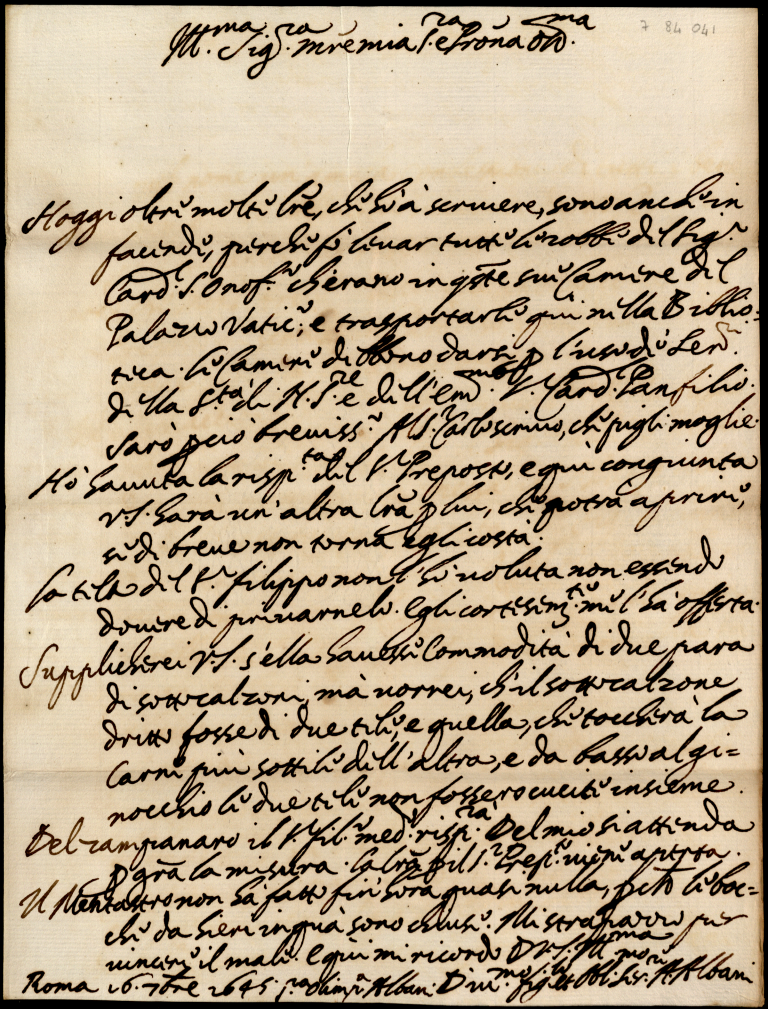 7 84 041
Ill.ma Sig.ra mre mia S.ra e Prona oss.ma
Hoggi oltre molte lre, che hò à scrivere, sono anche in
facende, perche fò levar tutte le robbe del Sig.r
Card.l S. Onof.o ch'erano in qste sue Camere del
Palazzo Vatic.o, e trasportarle quì nella Biblio=
teca. le Camere debbono darsi p l'uso di
della S.tà di N. S.re e dell'em.mo S.r Card.l Panfilio.
Sarò pciò breviss.o Al S.r Carlo scrivo, che pigli moglie.
Hò havuta la risp.ta del S.r Preposto, e quì congiunta
V.S. havrà un'altra lra p lui, che potrà aprire,
se di breve non torna egli costà.
La tela del S.r filippo non l'hò voluta non essendo
dovere di privarnelo. Egli cortesem.te me l'hà offerta.
Supplicherei V.S. s'ella havesse Commodità di due para
di sottocalzoni, mà vorrei, ch'il sottocalzone
dritto fosse di due tele, e quella, che toccherà la
Carne più sottile dell'altra, e da basso al gi=
nocchio le due tele non fossero cucite insieme.
Del zampanaro il S.r fil.o med.o risp.rà. Del mio si attenda
p grã la misura. la lra p il S.r Prep.o viene aperta.
Il Mentastro non hà fatto fin hora quasi nulla, le boc=
che da hieri in quà sono chiuse. Mi strapazzo per
vincere il male. e quì mi ricordo D V.S. Ill.ma
Roma 16. 7bre 1645. S.ra Olimp.a Alban. Div.mo fig. et Obl. Ser.re A. Albani